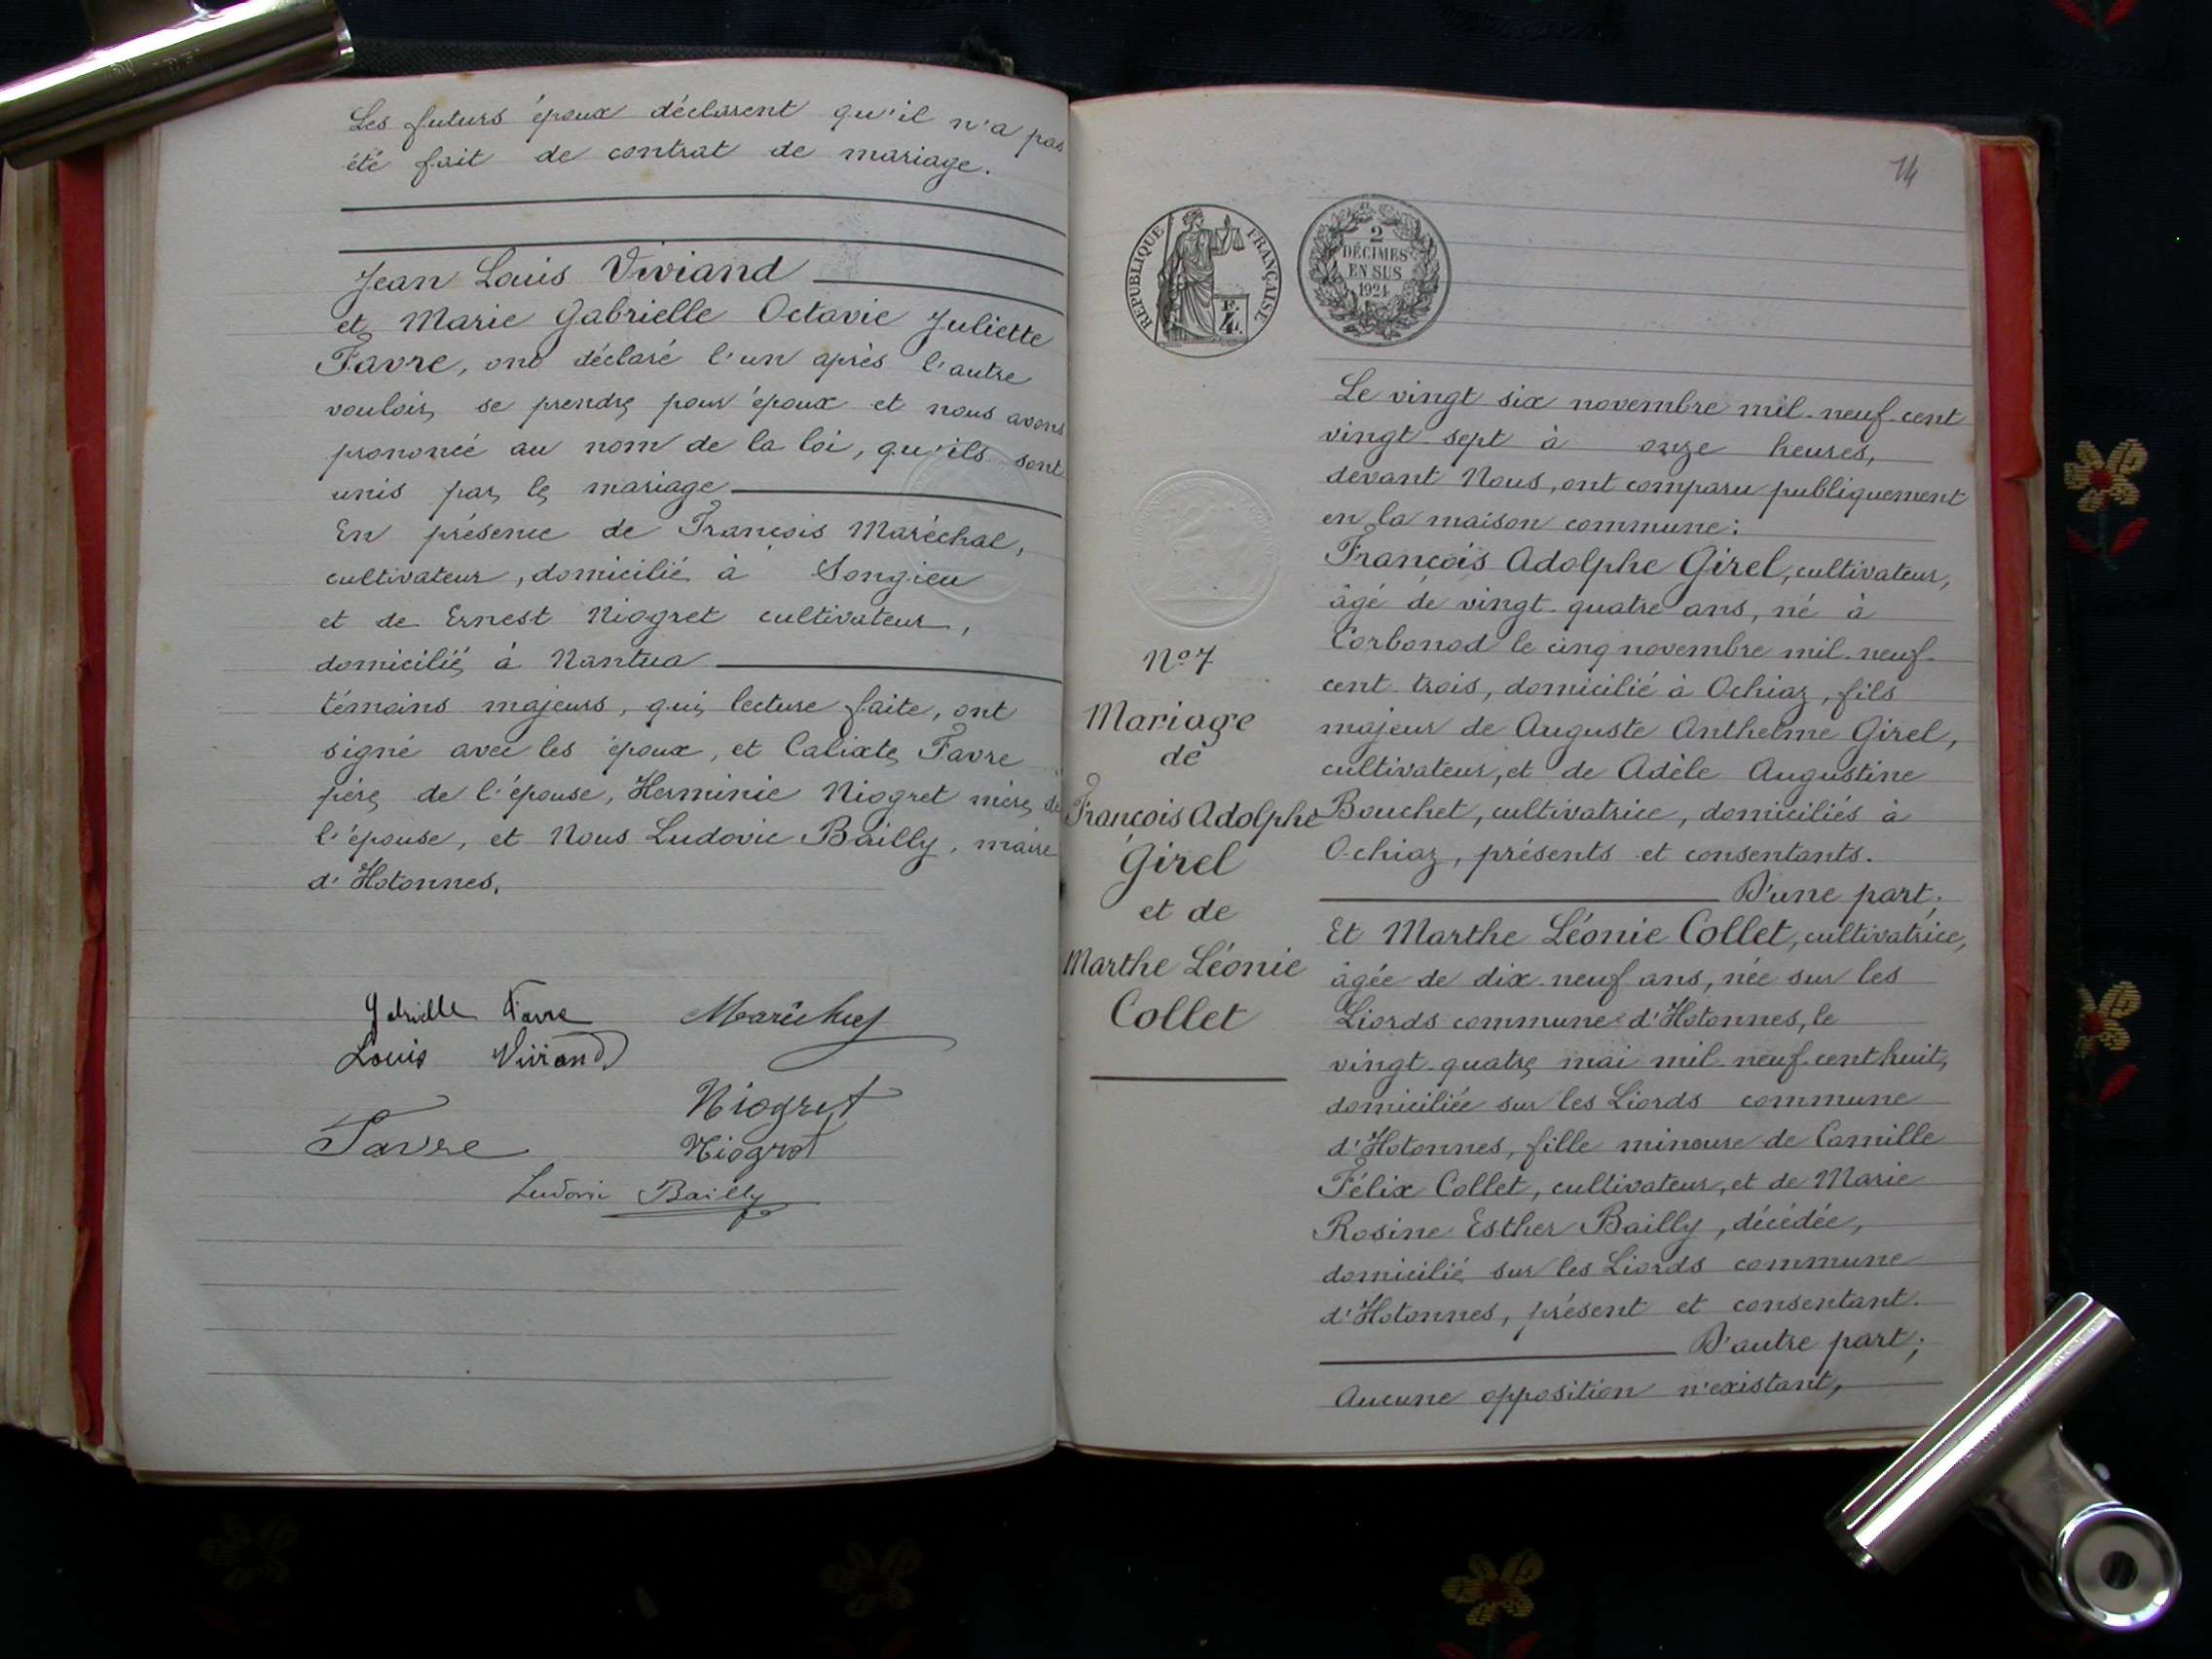 Les futurs époux déclarent qu'il n'a pas
été fait de contrat de mariage.
Jean Louis Viviand
et Marie Gabrielle Octavie Juliette
Favre, ont déclaré l'un après l'autre
vouloir se prendre pour époux et nous avons
prononcé au nom de la loi, qu'ils sont
unis par le mariage
En présence de François Maréchal,
cultivateur, domicilié à Songieu
et de Ernest Niogret cultivateur,
domicilié à Nantua
témoins majeurs, qui, lecture faite, ont
signé avec les époux, et Calixte Favre
père de l'épouse, Herminie Niogret mère de
l'épouse, et Nous Ludovic Bailly, maire
d'Hotonnes.
Gabrielle Favre
Maréchal
Louis Viviand
Niogret
Favre
Niogret
Ludovic Bailly
14
RÉPUBLIQUE FRANÇAISE
E.
4.
2
DÉCIMES
EN SUS
1924
N° 7
Mariage
de
François Adolphe
Girel
et de
Marthe Léonie
Collet
Le vingt six novembre mil-neuf-cent
vingt-sept à onze heures,
devant Nous, ont comparu publiquement
en la maison commune:
François Adolphe Girel, cultivateur,
âgé de vingt-quatre ans, né à
Corbonod le cinq novembre mil-neuf-
cent-trois, domicilié à Ochiaz, fils
majeur de Auguste Anthelme Girel,
cultivateur, et de Adèle Augustine
Bouchet, cultivatrice, domiciliés à
Ochiaz, présents et consentants.
D'une part;
Et Marthe Léonie Collet, cultivatrice,
âgée de dix-neuf ans, née sur les
Liords commune d'Hotonnes, le
vingt-quatre mai mil-neuf-cent huit,
domiciliée sur les Liords commune
d'Hotonnes, fille mineure de Camille
Félix Collet, cultivateur, et de Marie
Rosine Esther Bailly, décédée,
domicilié sur les Liords commune
d'Hotonnes, présent et consentant.
D'autre part;
Aucune opposition n'existant,